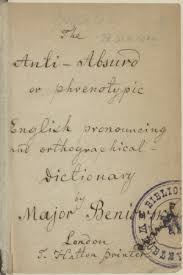 The
Anti-Absurd
or phrenotypic
English pronouncing
and orthographical-
Dictionary
by
Major Beniowski
London
T. Hatton printer